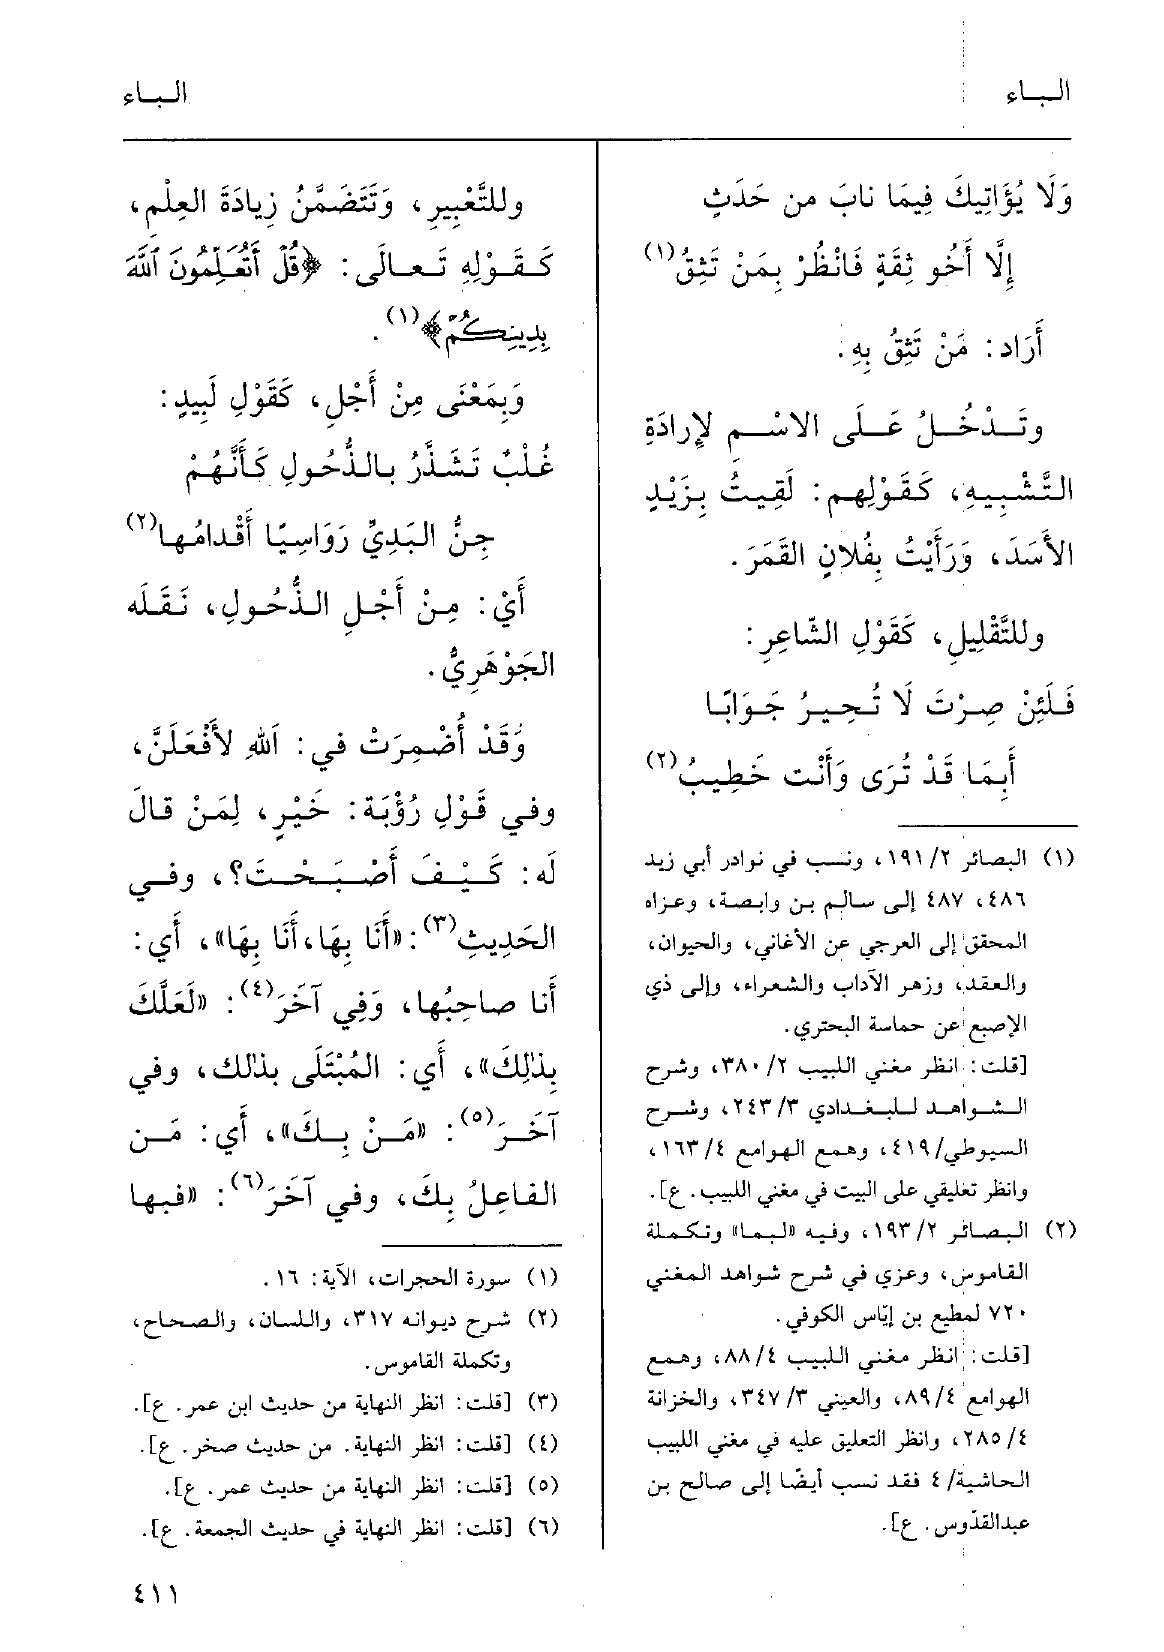 الباء
الباء
وَلَا يُؤَاتِيكَ فِيمَا نابَ من حَدَثٍ
إِلَّا أَخُو ثِقَةٍ فَانْظُرْ بِمَنْ تَثِقُ(١)
أَرَاد: مَنْ تَثِقُ بِهِ.
وتَدْخُلُ عَلَى الاسْمِ لإِرادَةِ
التَّشْبِيهِ، كَقَوْلِهِم: لَقِيتُ بِزَيْدٍ
الأَسَدَ، وَرَأَيْتُ بِفُلانٍ القَمَرَ.
وللتَّقْلِيلِ، كَقَوْلِ الشّاعِرِ:
فَلَئِنْ صِرْتَ لَا تُحِيرُ جَوَابًا
أَبِمَا قَدْ تُرَى وَأَنْت خَطِيبُ(٢)
(١) البصائر ١٩١/٢، ونسب في نوادر أبي زيد
٤٨٦، ٤٨٧ إلى سالم بن وابصة، وعزاه
المحقق إلى العرجي عن الأغاني، والحيوان،
والعقد، وزهر الآداب والشعراء، وإلى ذي
الإصبع عن حماسة البحتري.
[قلت: انظر مغني اللبيب ٣٨٠/٢، وشرح
الشواهد للبغدادي ٢٤٣/٣، وشرح
السيوطي/٤١٩، وهمع الهوامع ١٦٣/٤،
وانظر تعليقي على البيت في مغني اللبيب. ع].
(٢) البصائر ١٩٣/٢، وفيه «لبما» وتكملة
القاموس، وعزي في شرح شواهد المغني
٧٢٠ لمطيع بن إيّاس الكوفي.
[قلت: انظر مغني اللبيب ٨٨/٤، وهمع
الهوامع ٨٩/٤، والعيني ٣٤٧/٣، والخزانة
٢٨٥/٤، وانظر التعليق عليه في مغني اللبيب
الحاشية/ ٤ فقد نسب أيضًا إلى صالح بن
عبدالقدّوس. ع].
وللتَّعْبِيرِ، وَتَتَضَمَّنُ زِيادَةَ العِلْمِ،
كَقَوْلِهِ تَعالَى: ﴿قُلْ أَتُعَلِّمُونَ ٱللَّهَ
بِدِينِكُمْ﴾(١).
وَبِمَعْنَى مِنْ أَجْلِ، كَقَوْلِ لَبِيدٍ:
غُلْبٌ تَشَذَّرُ بِالذُّحُولِ كَأَنَّهُمْ
جِنُّ البَدِيِّ رَوَاسِيًا أَقْدامُها(٢)
أَيْ: مِنْ أَجْلِ الذُّحُولِ، نَقَلَه
الجَوْهَرِيُّ.
وَقَدْ أُضْمِرَتْ في: اَللهِ لأَفْعَلَنَّ،
وفي قَوْلِ رُؤْبَة: خَيْرٍ، لِمَنْ قالَ
لَه: كَيْفَ أَصْبَحْتَ؟، وفي
الحَدِيثِ(٣): «أَنَا بِهَا، أَنَا بِهَا»، أَي:
أنا صاحِبُها، وَفِي آخَرَ(٤): «لَعَلَّكَ
بِذٰلِكَ»، أَي: المُبْتَلَى بذلك، وفي
آخَرَ(٥): «مَنْ بِكَ»، أَي: مَن
الفاعِلُ بِكَ، وفي آخَرَ(٦): «فبها
(١) سورة الحجرات، الآية: ١٦.
(٢) شرح ديوانه ٣١٧، واللسان، والصحاح،
وتكملة القاموس.
(٣) [قلت: انظر النهاية من حديث ابن عمر. ع].
(٤) [قلت: انظر النهاية. من حديث صخر. ع].
(٥) [قلت: انظر النهاية من حديث عمر. ع].
(٦) [قلت: انظر النهاية في حديث الجمعة. ع].
٤١١